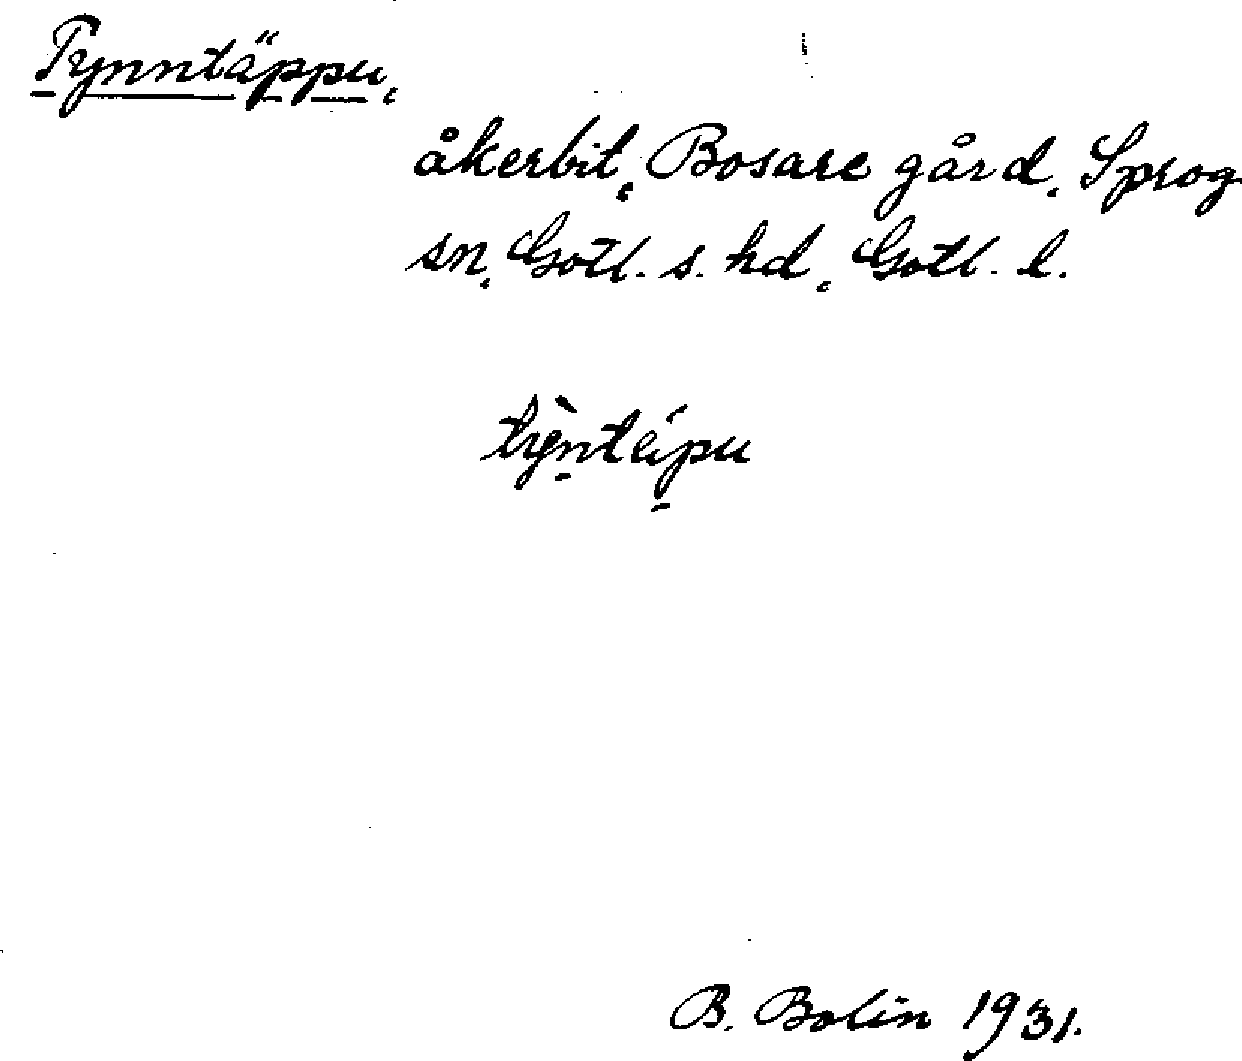 Tynntäppu,
åkerbit, Bosare gård, Sprog
sn, Gotl. s. hd, Gotl. l.
B. Bolin 1931.